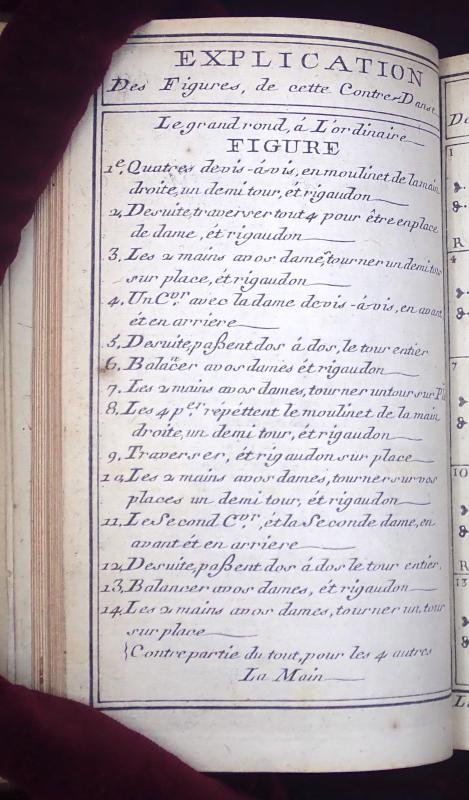 EXPLICATION
Des Figures, de cette Contre-Danse
Le grand rond, á L'ordinaire
FIGURE
1e. Quatres devis-ávis, en moulinet de la main
droite, un demi tour, ét rigaudon
2, De suite, traverser tout 4 pour être en place
de dame, ét rigaudon
3. Les 2 mains avos dame, tourner un demi tour
sur place, ét rigaudon
4. Un Cvr. avec la dame devis-ávis, en avant
ét en arriere
5. De suite, paßent dos á dos, le tour entier
6. Balancer avos dames ét rigaudon
7. Les 2 mains avos dames, tourner un tour sur
8. Les 4 pers. répéttent le moulinet de la main
droite, un demi tour, ét rigaudon
9. Traverser, ét rigaudon sur place
10. Les 2 mains avos dames, tourner sur vos
places un demi tour, ét rigaudon
11. Le Second Cvr., ét la Seconde dame, en
avant ét en arriere
12. De suite, paßent dos á dos le tour entier,
13. Balancer avos dames, ét rigaudon
14. Les 2 mains avos dames, tourner un tour
sur place
{Contre partie du tout, pour les 4 autres
La Main
1
R
4
7
10
R
13